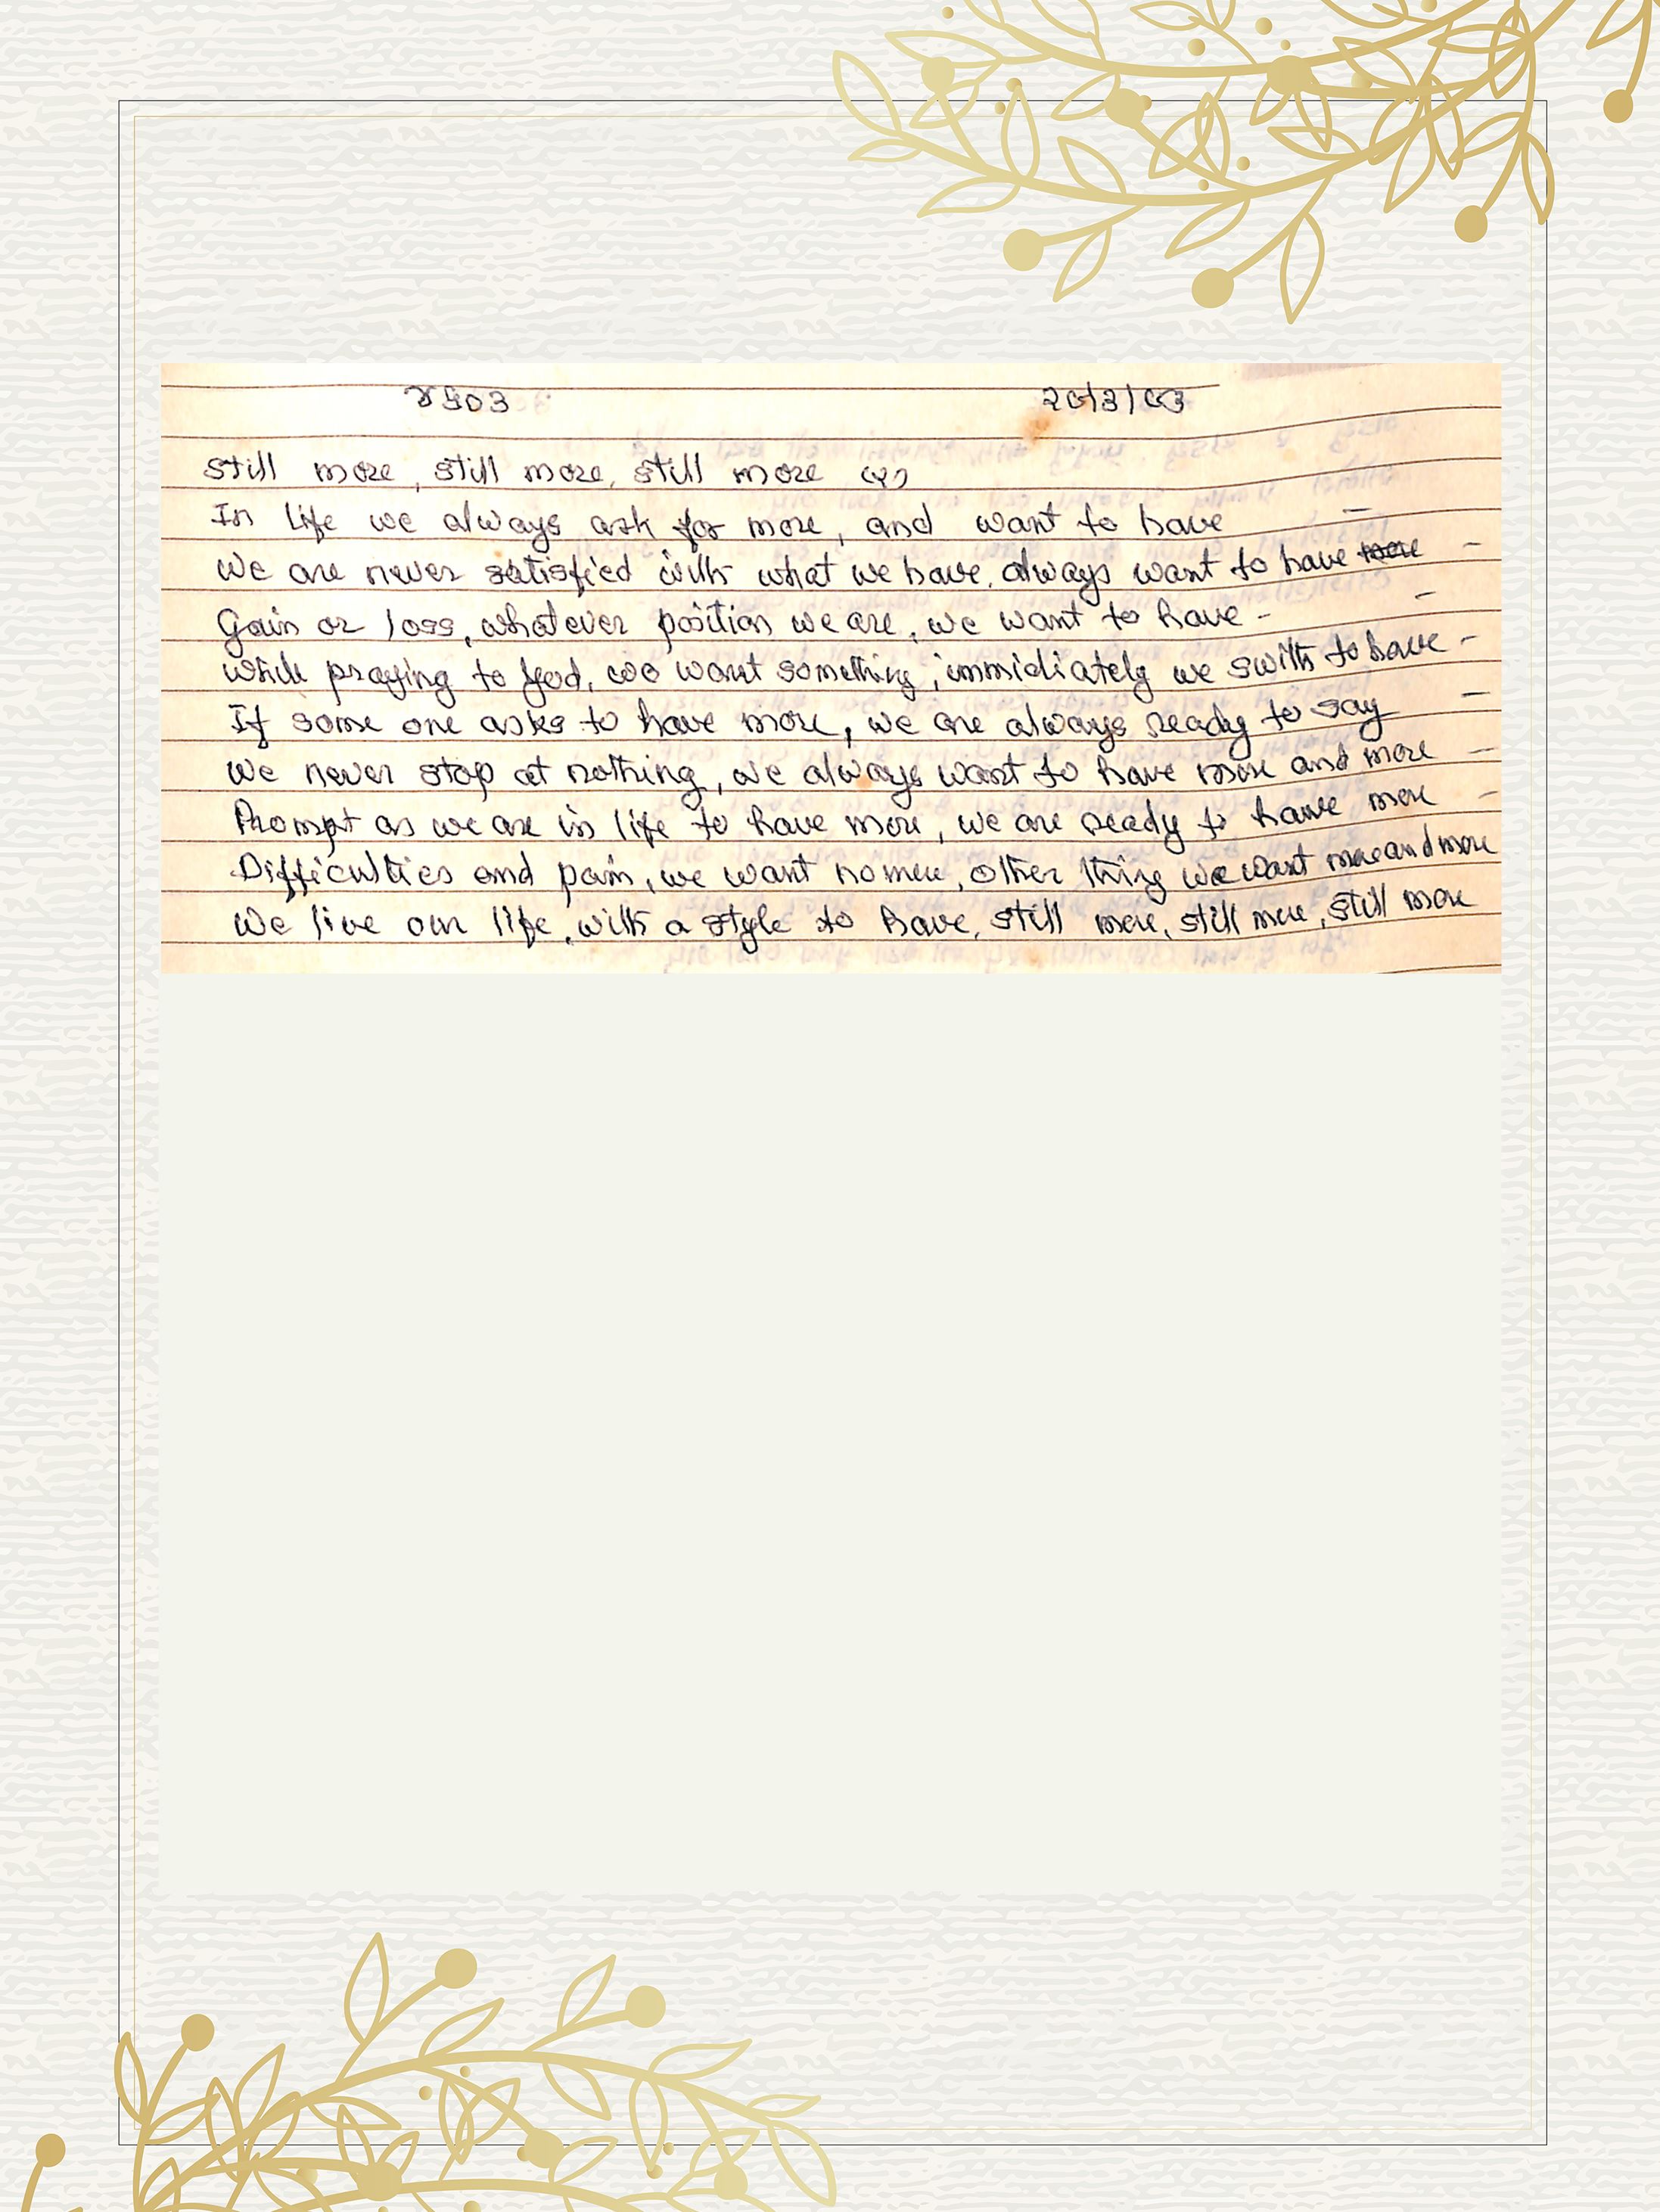 ૪૬૦૩ ૨૦/૩/૦૩
still more, still more, still more (૨)
In life we always ask for more, and want to have -
We are never satisfied with what we have, always want to have -
Gain or loss, whatever position we are, we want to have - -
While praying to God, we want something, immidiately we swith to have -
If some one asks to have more, we are always ready to say -
We never stop at nothing, we always want to have more and more -
Prompt as we are in life to have more, we are ready to have more -
Difficulties and pain, we want no more, other thing we want more and more
We live our life, with a style to have, still more, still more, still more